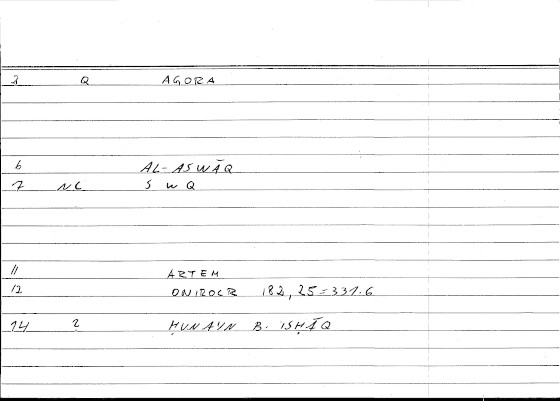 3 Q AGORA
6 AL-ASWĀQ
7 NC S W Q
11 ARTEM
12 ONIROCR 182,25=331.6
14 2 ḤUNAYN B. ISḤĀQ